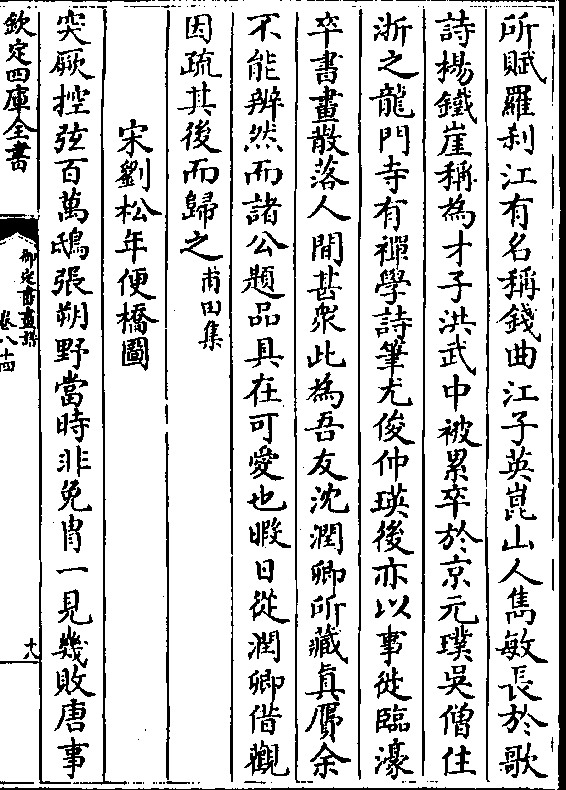 所賦羅刹江有名稱錢曲江子英崑山人雋敏長於歌
詩楊鐵崖稱為才子洪武中被累卒於京元璞吳僧住
浙之龍門寺有禪學詩筆尤俊仲瑛後亦以事徙臨濠
卒書畫散落人間甚衆此為吾友沈潤卿所藏真贋余
不能辨然而諸公題品具在可愛也暇日從潤卿借觀
因疏其後而歸之甫田集
宋劉松年便橋圖
突厥控弦百萬鴟張朔野當時非免胄一見幾敗唐事
欽定四庫全書
御定書畫譜
卷八十四
十九